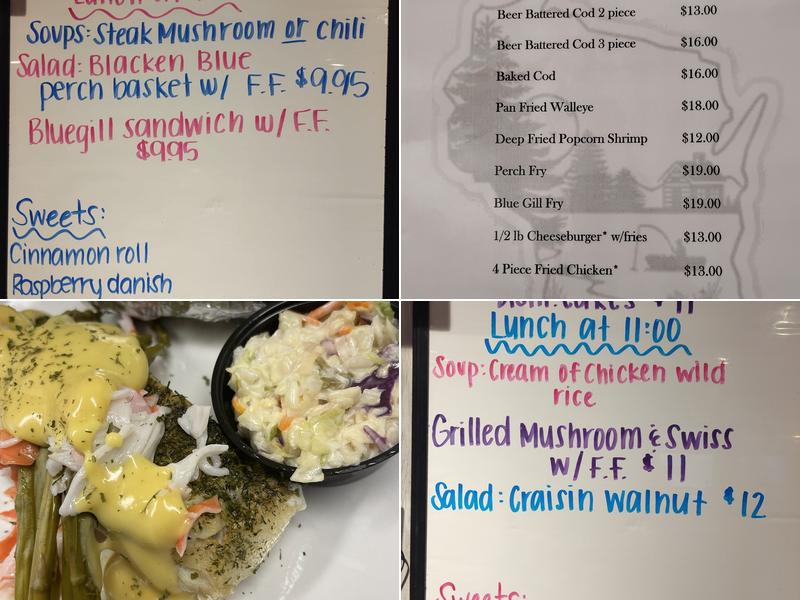 Soups: Steak Mushroom or chili
Salad: Blacken Blue
perch basket w/ F.F. $9.95
Bluegill sandwich w/ F.F.
$9.95
Sweets:
Cinnamon roll
Raspberry danish
Beer Battered Cod 2 piece $13.00
Beer Battered Cod 3 piece $16.00
Baked Cod $16.00
Pan Fried Walleye $18.00
Deep Fried Popcorn Shrimp $12.00
Perch Fry $19.00
Blue Gill Fry $19.00
1/2 lb Cheeseburger* w/fries $13.00
4 Piece Fried Chicken* $13.00
Lunch at 11:00
Soup: Cream of Chicken wild
rice
Grilled Mushroom & Swiss
w/ F.F. $11
Salad: Craisin walnut $12
Sweets: